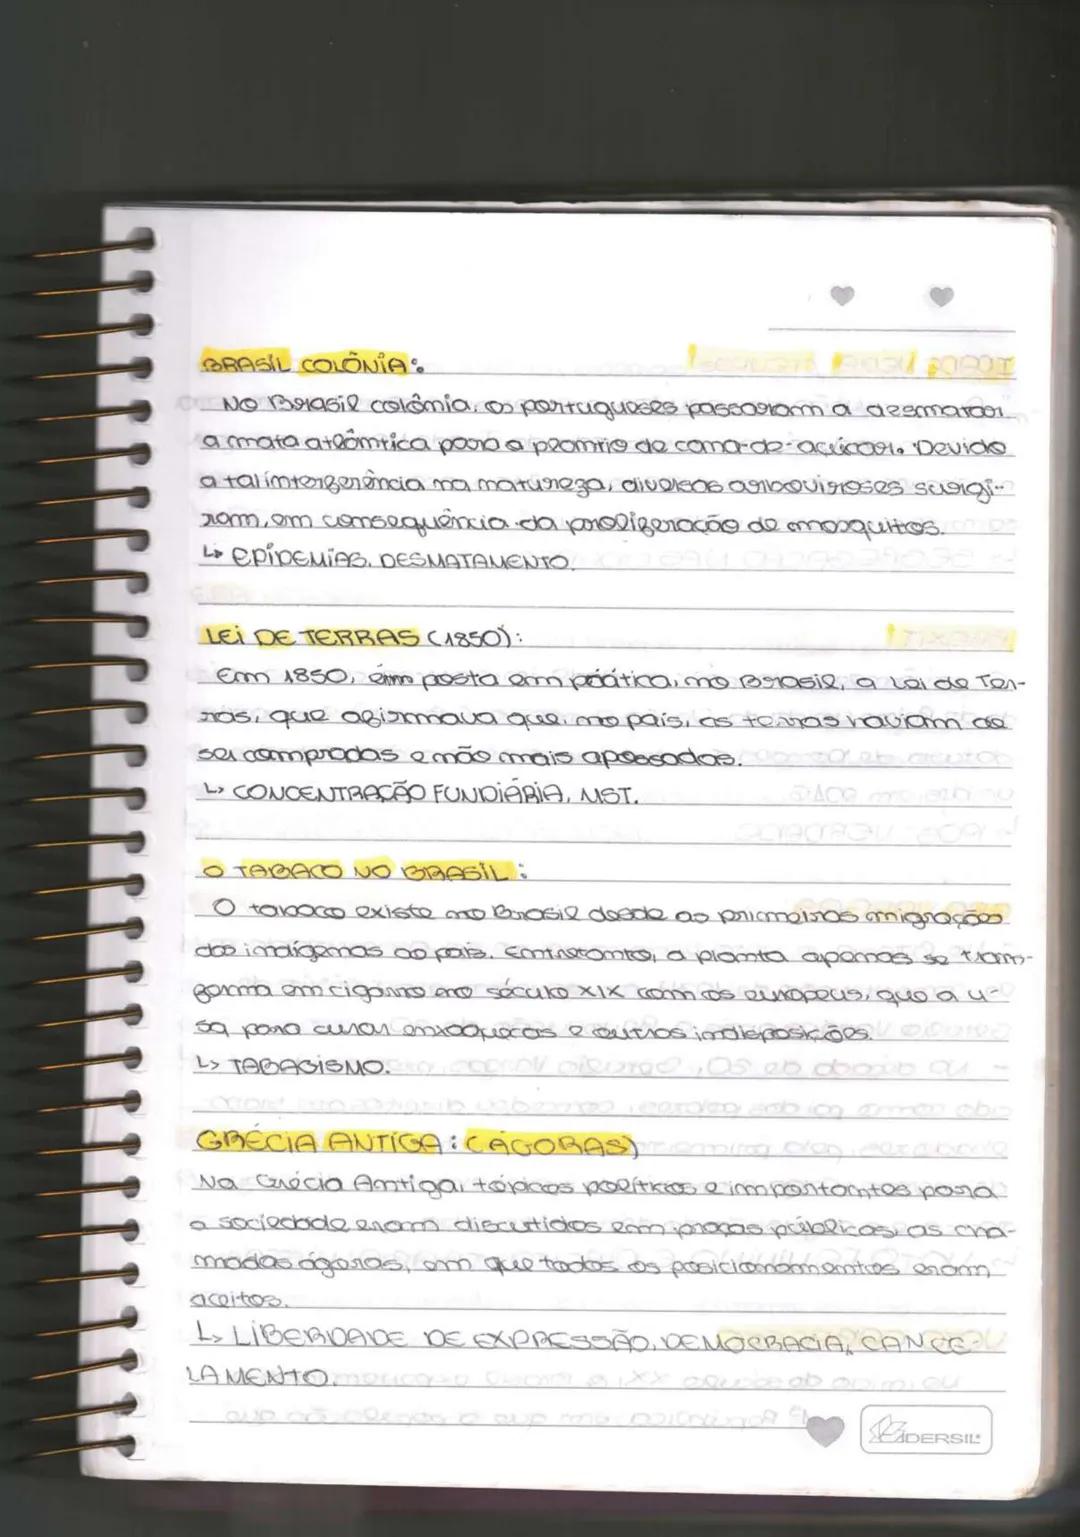 BRASIL COLÔNIA:
No Brasil colônia, os portugueses passaram a desmatar
a mata atlântica para o plantio de cana-de-açúcar. Devido
a tal interferência na natureza, diversas arboviroses surgi-
ram, em consequência da proliferação de mosquitos.
↳ EPIDEMIAS, DESMATAMENTO.
LEI DE TERRAS (1850):
Em 1850, posta em prática, no Brasil, a Lei de Ter-
ras, que afirmava que, no país, as terras haviam de
ser compradas e não mais apossadas.
↳ CONCENTRAÇÃO FUNDIÁRIA, MST.
O TABACO NO BRASIL:
O tabaco existe no Brasil desde as primeiras migrações
dos indígenas ao país. Entretanto, a planta apenas se trans-
forma em cigarro no século XIX com os europeus, que a u-
sa para curar enxaquecas e outras indisposições.
↳ TABAGISMO.
GRÉCIA ANTIGA: (ÁGORAS)
Na Grécia Antiga, tópicos políticos e importantes para
a sociedade eram discutidos em praças públicas, as cha-
madas ágoras, em que todos os posicionamentos eram
aceitos.
↳ LIBERDADE DE EXPRESSÃO, DEMOCRACIA, CANCE-
LAMENTO.
LIDERSIL